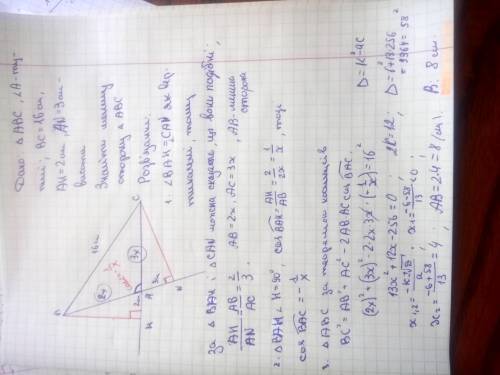 Дано: △ABC, ∠A - ту-
пий; BC = 16 см,
AH = 2 см, AN = 3 см -
висоти.
Знайти меншу
сторону △ABC
Розв'язання:
1. ∠BAH = ∠CAN як вер-
тикальні, тому
△BAH ~ △CAN
AH/AN = AB/AC = 2/3
AB = 2x, AC = 3x, AB - менша
сторона
2. △BAH ∠H = 90°, cos BAH = AH/AB = 2/2x = 1/x, тоді
cos BAC = -1/x
3. △ABC за теоремою косинусів
BC² = AB² + AC² - 2AB·AC cos BAC
(2x)² + (3x)² - 2·2x·3x·(-1/x) = 16²
13x² + 12x - 256 = 0
2k = 12;
D = k² - ac
D = 6² + 13·256
= 3364 = 58²
x₁,₂ = (-k±√D)/a, x₁ = (-6-58)/13 < 0
x₂ = (-6+58)/13 = 4, AB = 2·4 = 8 (см).
В: 8 см.
B
16 см
C
2x
3x
2
A
H
3
N